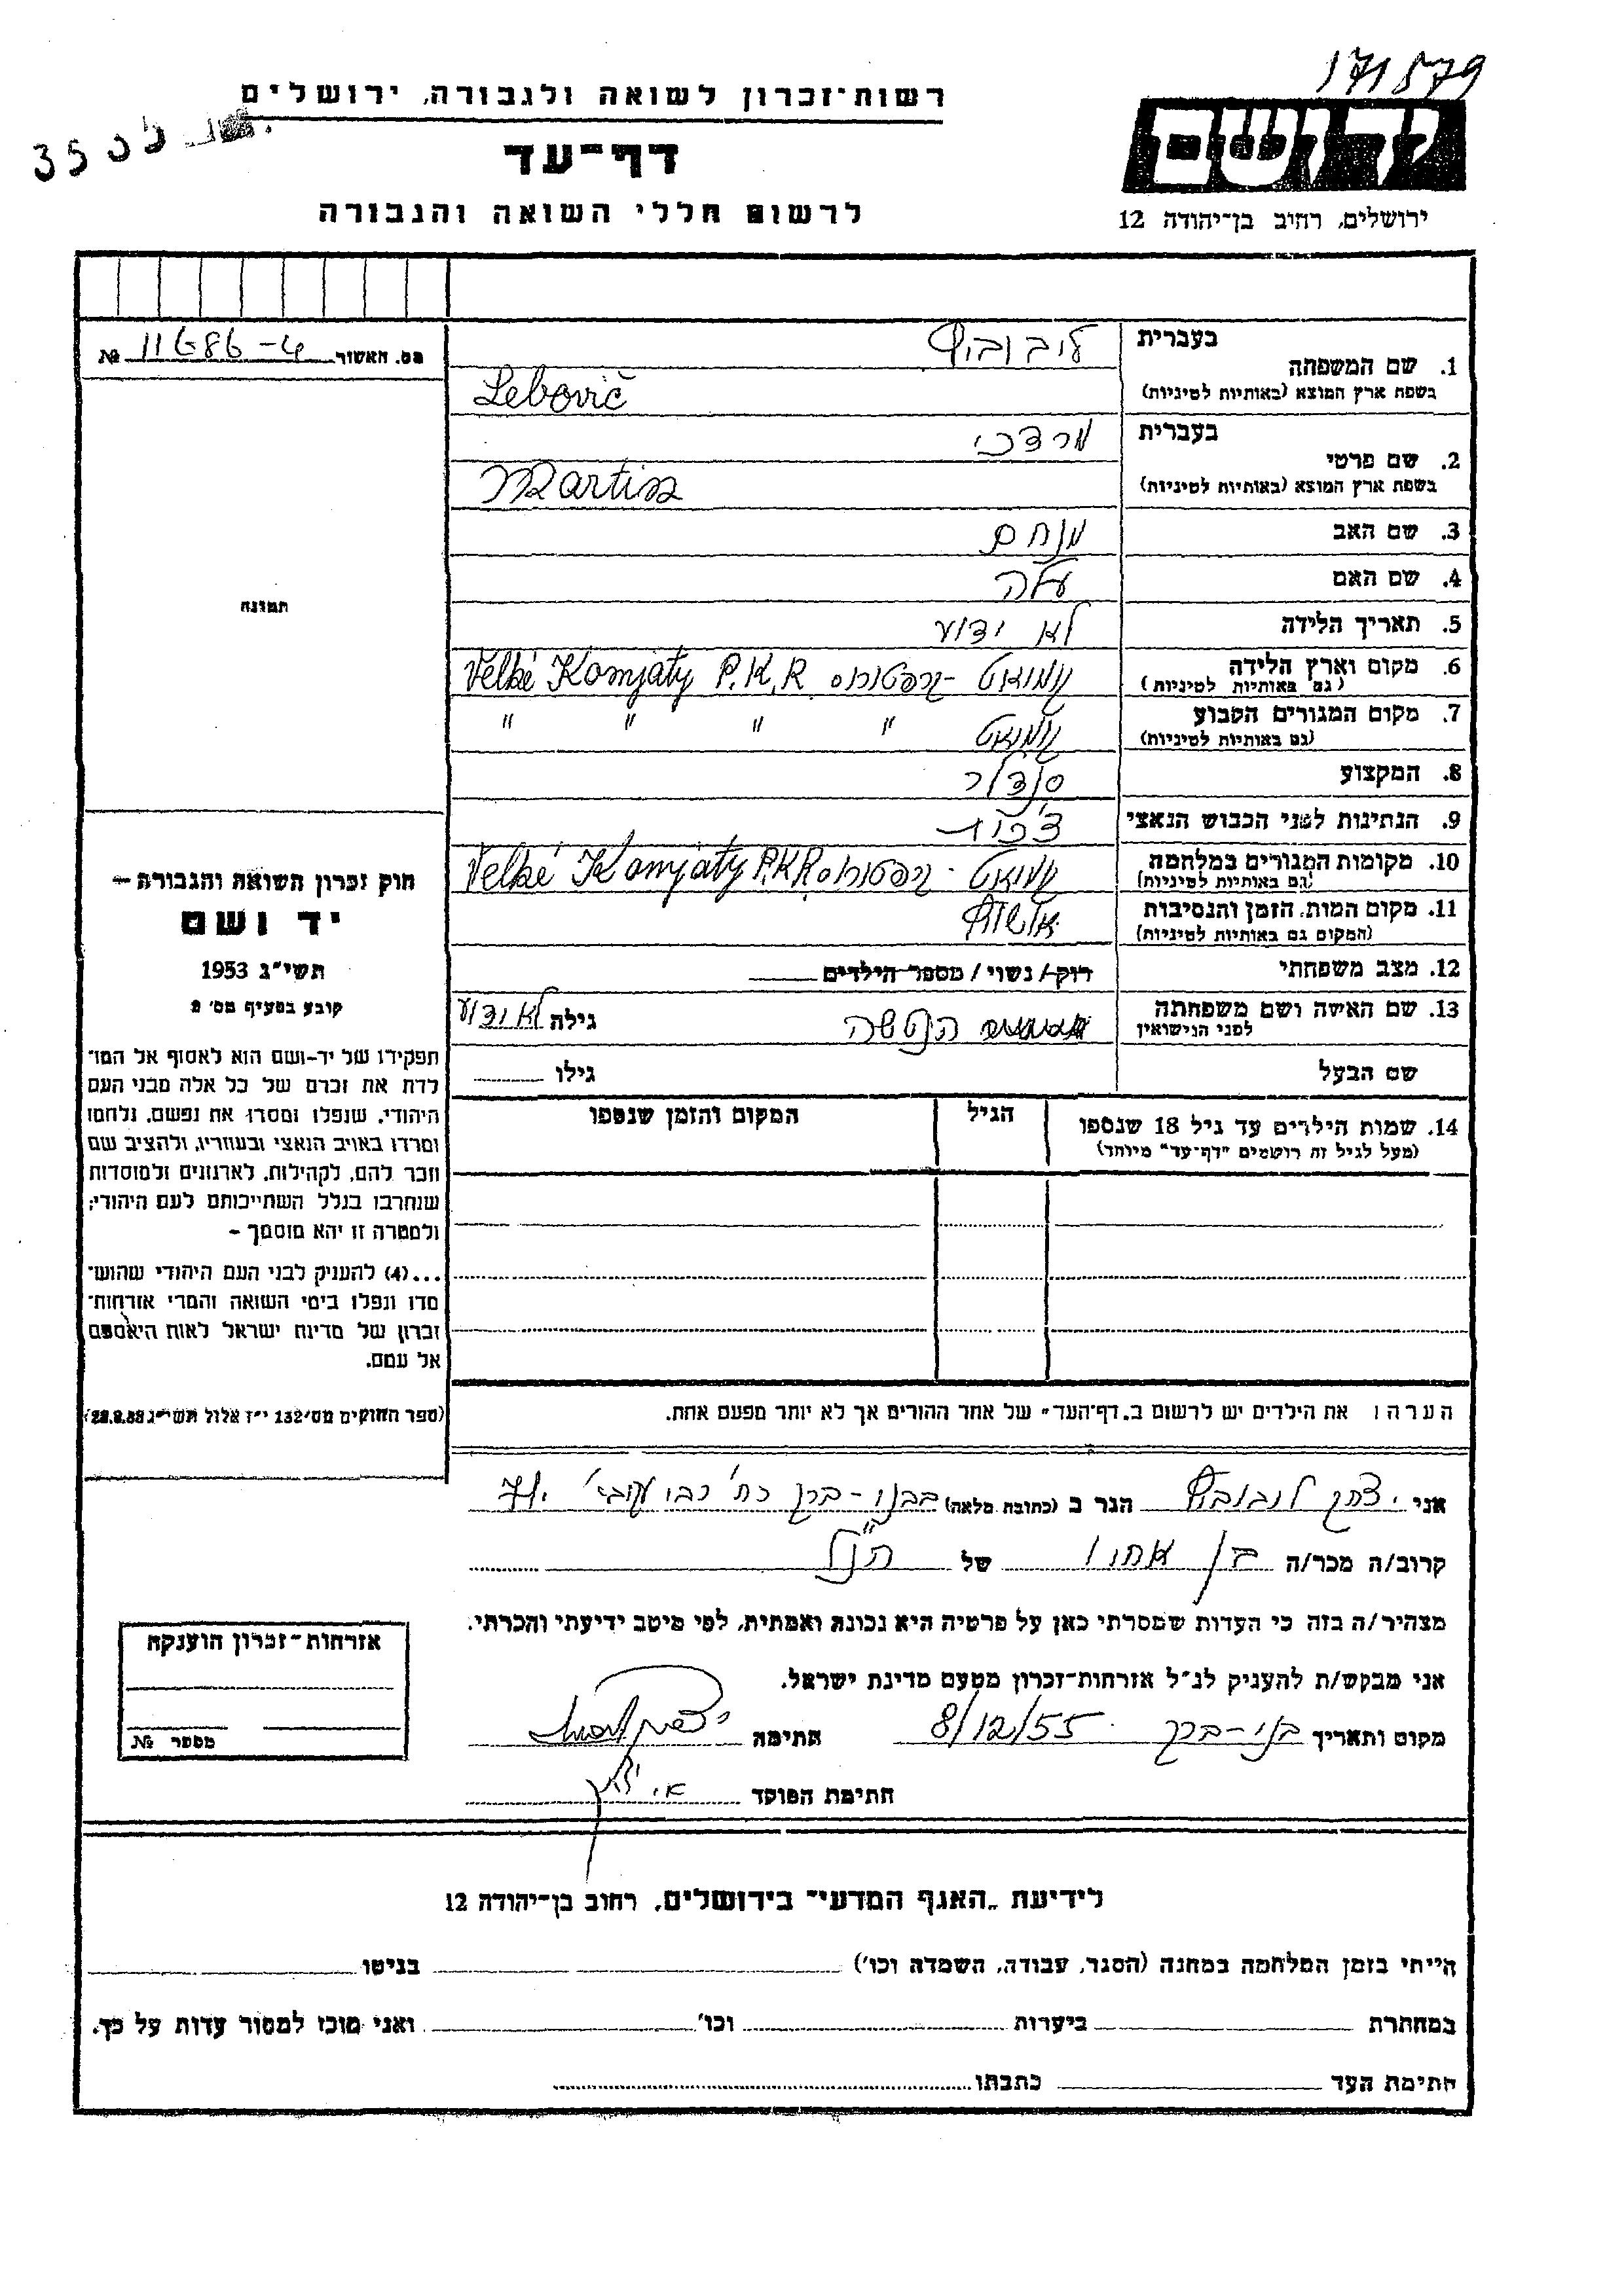 171579
רשות־זכרון לשואה ולגבורה, ירושלים
דף־עד
לרשום חללי השואה והגבורה
ידושם
ירושלים, רחוב בן־יהודה 12
מס. האשור 11686-4 №
תמונה
בעברית ליבוביץ
1. שם המשפחה
בשפת ארץ המוצא (באותיות לטיניות) Lebovič
בעברית מרדכי
2. שם פרטי
בשפת ארץ המוצא (באותיות לטיניות) Martin
3. שם האב מנחם
4. שם האם
5. תאריך הלידה לא ידוע
6. מקום וארץ הלידה
(גם באותיות לטיניות) Velké Komjaty P.K.R
7. מקום המגורים הקבוע " " " "
(גם באותיות לטיניות)
8. המקצוע סנדלר
9. הנתינות לפני הכבוש הנאצי
10. מקומות המגורים במלחמה
(גם באותיות לטיניות) Velké Komjaty P.K.R
11. מקום המות, הזמן והנסיבות אושויץ
(המקום גם באותיות לטיניות)
12. מצב משפחתי רוק/ נשוי / מספר הילדים
13. שם האשה ושם משפחתה גילה לא ידוע
לפני הנישואין
שם הבעל גילו
14. שמות הילדים עד גיל 18 שנספו הגיל המקום והזמן שנספו
(מעל לגיל זה רושמים "דף־עד" מיוחד)
הערה: את הילדים יש לרשום ב"דף־העד" של אחד ההורים אך לא יותר מפעם אחת.
חוק זכרון השואה והגבורה –
יד ושם
תשי"ג 1953
קובע בסעיף מס' 2
תפקידו של יד-ושם הוא לאסוף אל המו־
לדת את זכרם של כל אלה מבני העם
היהודי, שנפלו ומסרו את נפשם, נלחמו
ומרדו באויב הנאצי ובעוזריו, ולהציב שם
וזכר להם, לקהילות, לארגונים ולמוסדות
שנחרבו בגלל השתייכותם לעם היהודי;
ולמטרה זו יהא מוסמך –
...(4) להעניק לבני העם היהודי שהוש־
מדו ונפלו בימי השואה והמרי אזרחות־
זכרון של מדינת ישראל לאות היאספם
אל עמם.
(ספר החוקים מס' 132 י"ז אלול תשי"ג 28.8.53)
אני יצחק ליבוביץ הגר ב (כתובת מלאה) בבני-ברק
קרוב/ה מכר/ה בן אחיו של הנ"ל
מצהיר/ה בזה כי העדות שמסרתי כאן על פרטיה היא נכונה ואמתית, לפי מיטב ידיעתי והכרתי.
אני מבקש/ת להעניק לנ"ל אזרחות־זכרון מטעם מדינת ישראל.
מקום ותאריך בני-ברק 8/12/55 חתימה
חתימת הפוקד
אזרחות־זכרון הוענקה
מספר №
לידיעת "האגף המדעי" בירושלים, רחוב בן־יהודה 12
הייתי בזמן המלחמה במחנה (הסגר, עבודה, השמדה וכו') בגיטו
במחתרת ביערות וכו' ואני מוכן למסור עדות על כך.
חתימת העד כתבתו